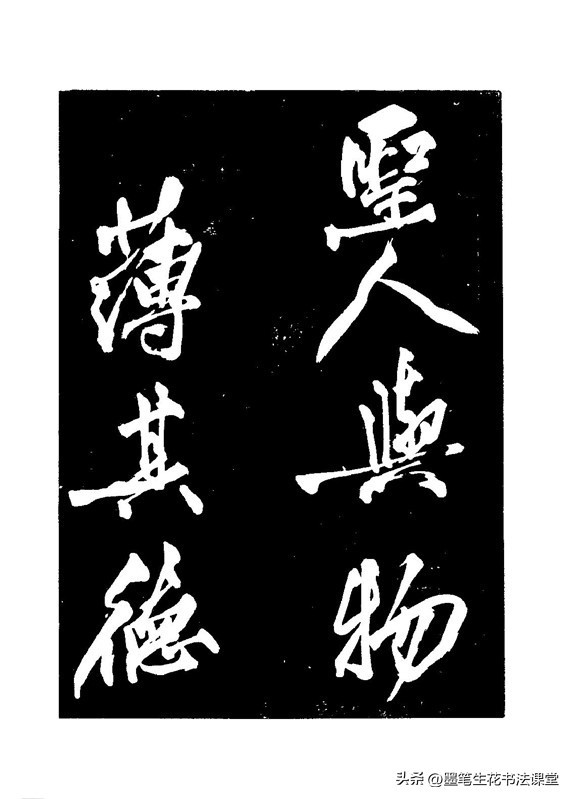 聖人與物
薄其德
头条 @墨笔生花书法课堂